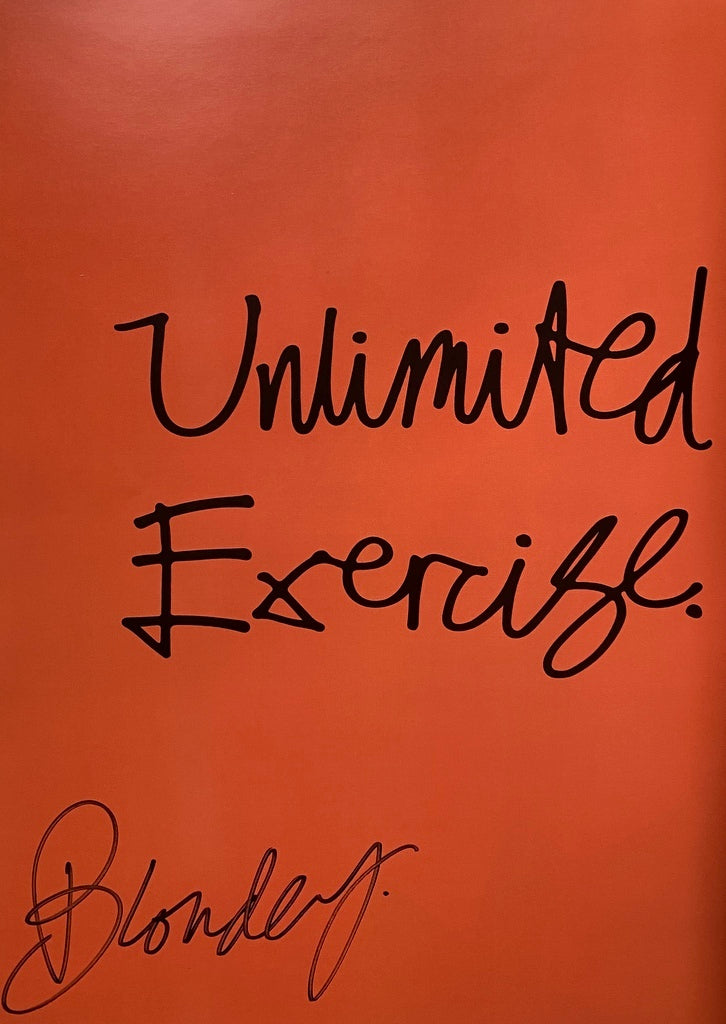 Unlimited
Exercize.
Blondey.